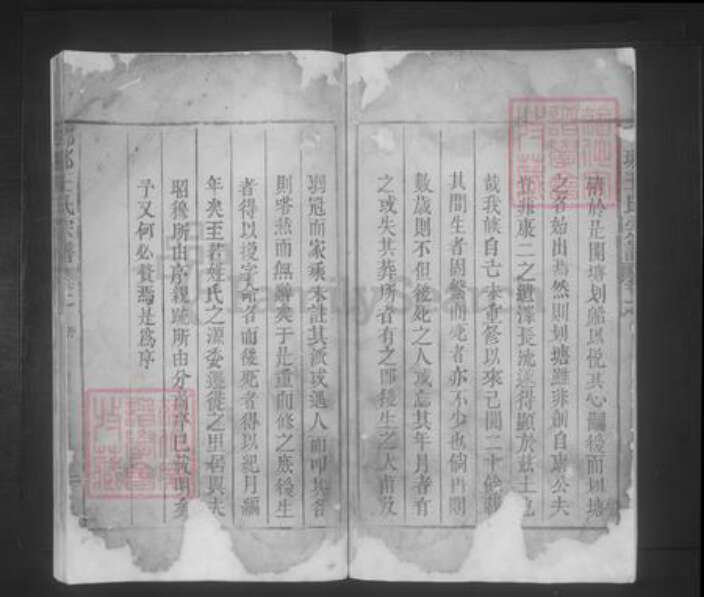 於是開塘划船以悅其心嗣後而划塘
之名始出焉然則划塘雖非創自康公夫
豈非康二之遺澤長流遂得顯於茲土也
哉我族自亡本重修以來已閱二十餘載
其間生者固繁而死者亦不少也倘再閱
數歲則不但後死之人或忘其年月者有
之或失其葬所者有之即後生之人甫及
弱冠而家乘未註其派或遇人而叩其名
則嗒然而無辭矣于是重而修之庶後生
者得以授字命名而後死者得以紀月編
年矣至若姓氏之源委遷徙之里居與夫
昭穆所由序親疎所由分前序已載明矣
予又何必贅焉是爲序
王氏宗譜